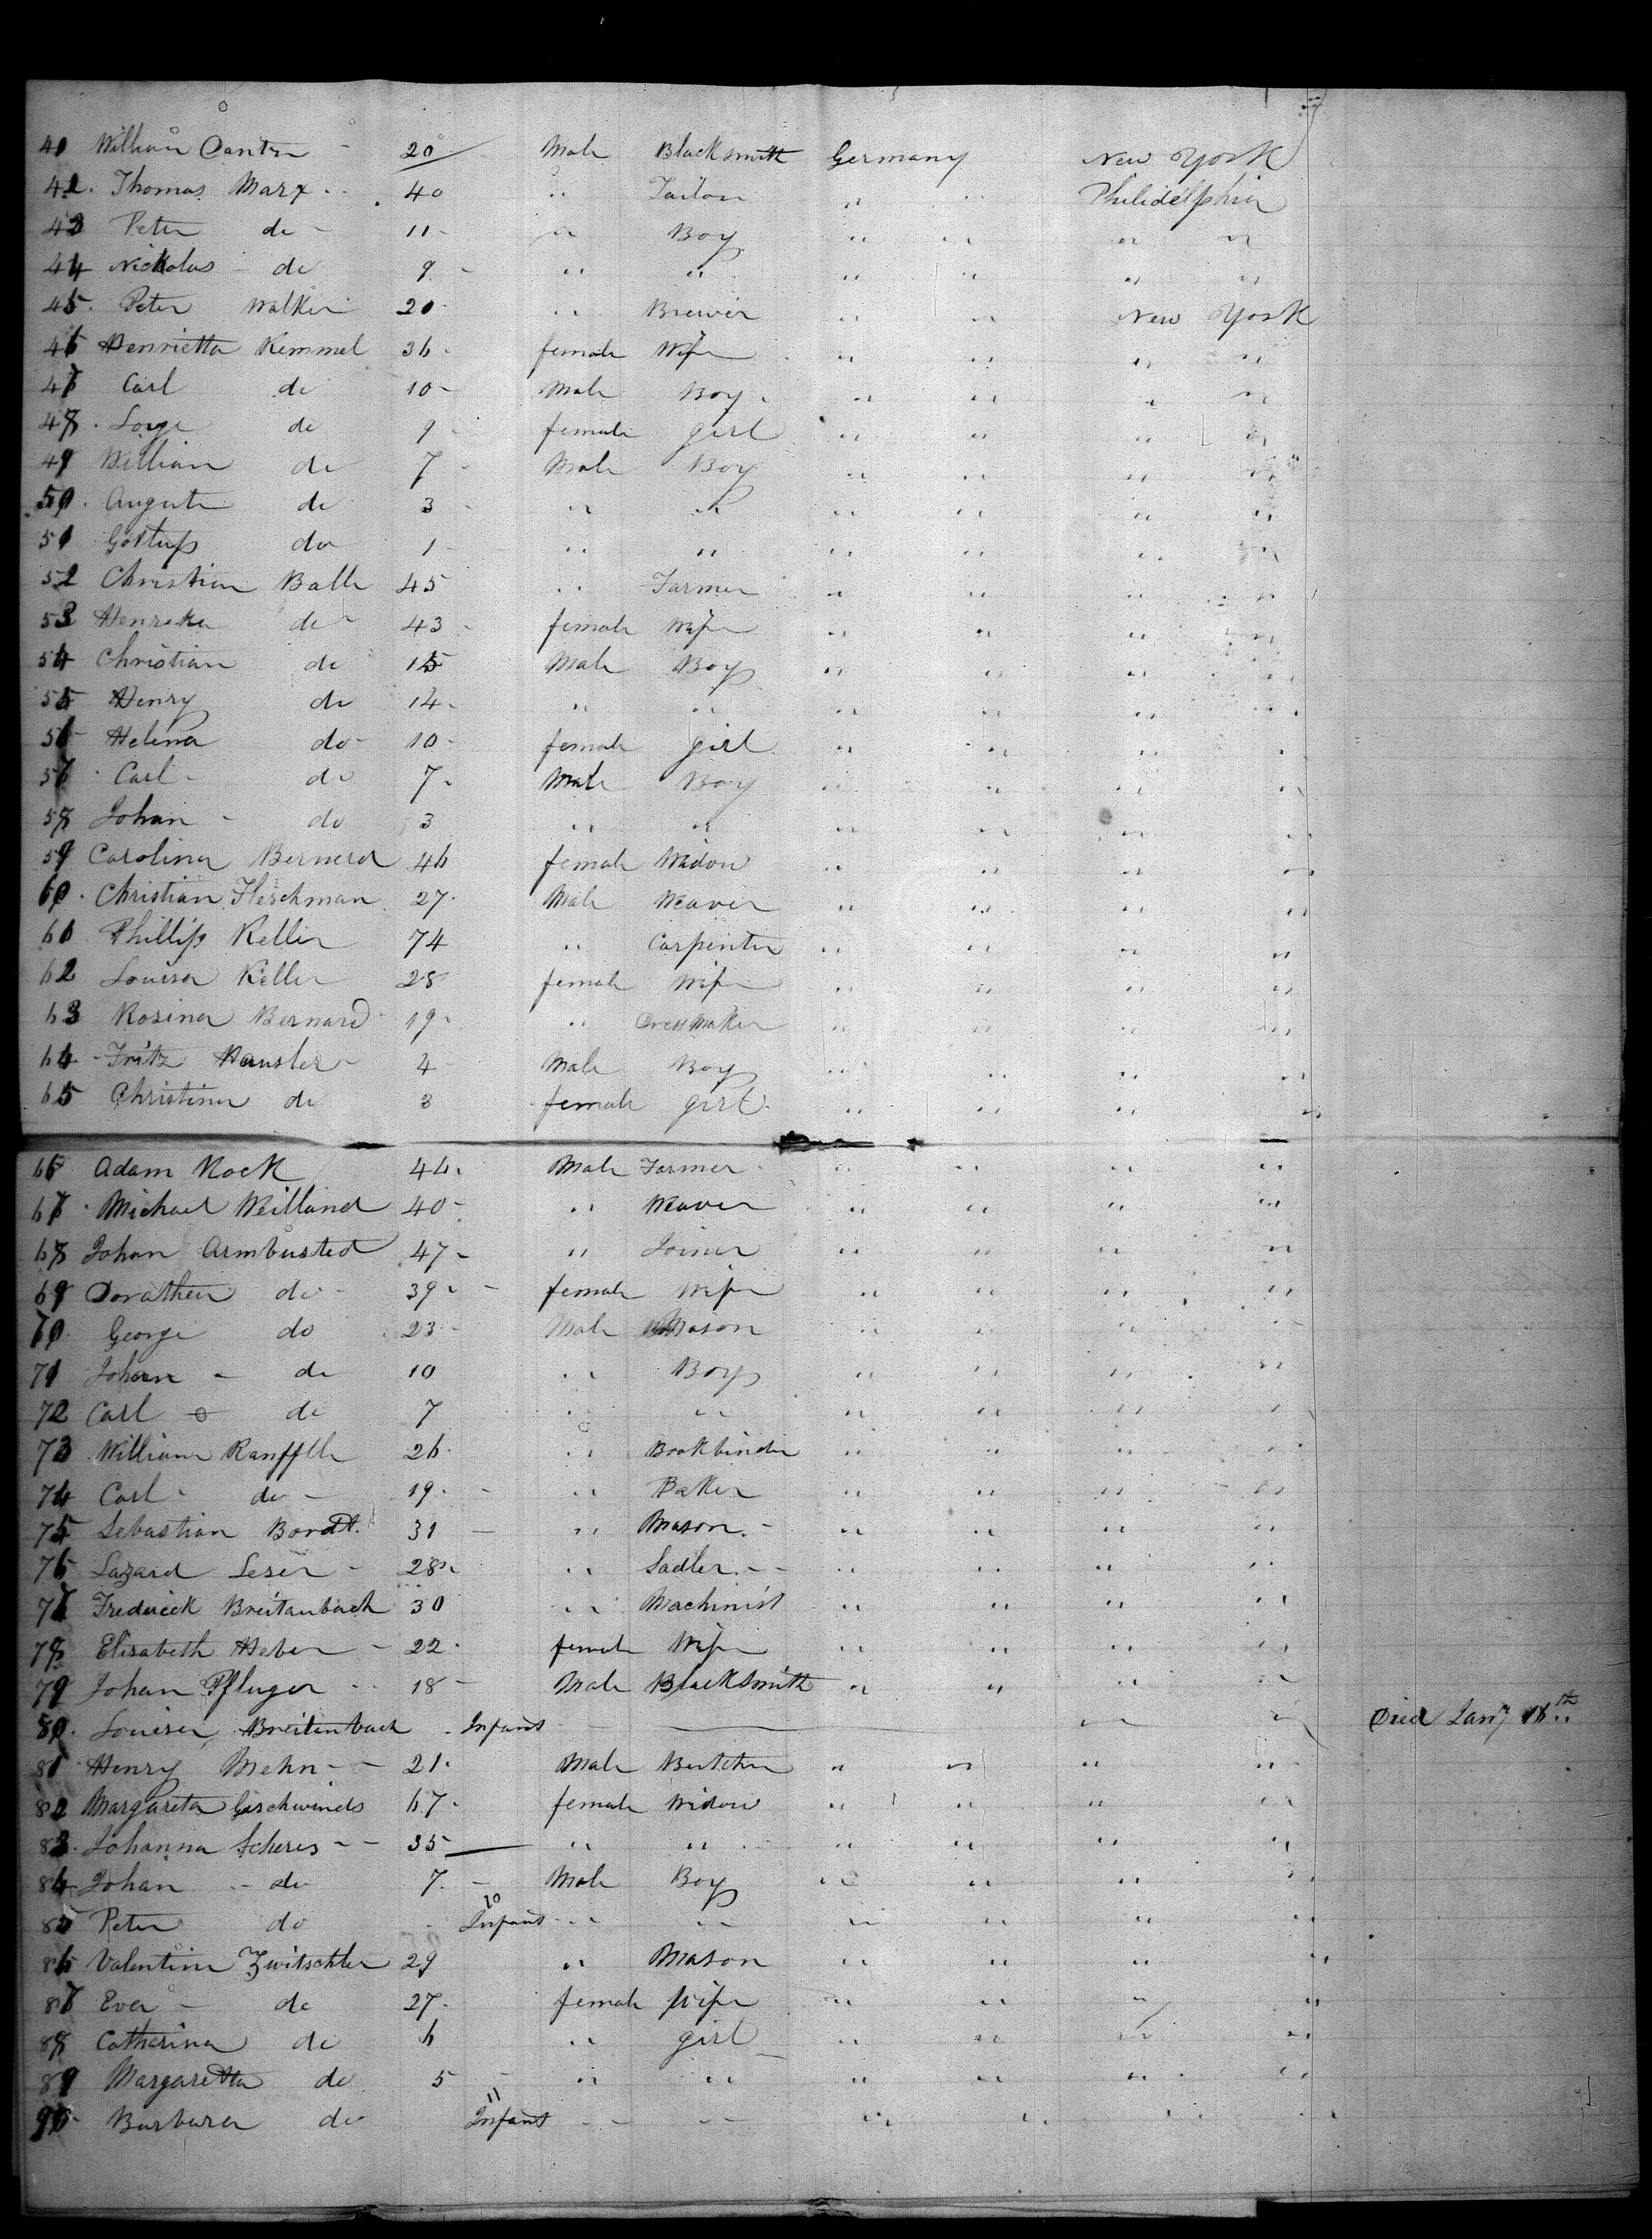 41 William Canton - 20 Male Blacksmith Germany New York
42. Thomas Marx .. 40 " Tailor " " Philidelphia
43 Peter do - 11 - " Boy " " " "
44 Nickolas - do 9 - " " " " " "
45. Peter Walker 20 - " Brewer " " New York
46 Henrietta Kemmel 36 - female Wife " " " "
47 Carl do 10 - Male Boy " " " "
48. do 9 - female girl " " " "
49 William do 7 - Male Boy " " " "
50. August do 3 - " " " " " "
51 do 1 - " " " " " "
52 Christian Balle 45 " Farmer " " " "
53 Henreka do - 43 - female Wife " " " "
54 Christian do 15 Male Boy " " " "
55 Henry do 14 - " " " " " "
56 Helena do - 10 - female girl " " " "
57 Carl - do 7 - Male Boy " " " "
58 Johan - do 3 " " " " " "
59 Carolina Bernerd 46 female Widow " " " "
60. Christian Fleschman 27. Male Weaver " " " "
61 Phillip Keller 74 " Carpenter " " " "
62 Louisa Keller 28 female Wife " " " "
63 Rosina Bernard 19 - " Dress Maker " " " "
64 - Fritz Hausler - 4 - Male Boy " " " "
65 Christina do 3 female girl " " " "
66 Adam Rock 46. Male Farmer " " " "
67. Michael Weilland 40 - " Weaver " " " "
68 Johan Armbusted 47 - " Joiner " " " "
69 Dorathea do - 39 - - female Wife " " " "
70. George do 23 - Male Mason " " " "
71 Johan - do 10 " Boy " " " "
72 Carl - do 7 " " " " " "
73 William Ranfflle 26. " Bookbinder " " " "
74 Carl - do - 19. - " Baker " " " "
75 Sebastian Bordt. 31 - " Mason. - " " " "
76 Lazard Leser - 28 - " Sadler. - - " " " "
77 Frederick Breitanbach 30 " Machinist " " " "
78 Elisabeth Heber - 22. female Wife " " " "
79 Johan Pfluger .. 18 - Male Blacksmith " " " "
80. Louisa Breitenbach . Infant - — " " Died Jany 16th
81 Henry Mehn - - 21. Male Butcher " " " "
82 Margareta Geschwinds 67. female Widow " " " "
83. Johanna Scheres - - 35 — " " " " " "
84 Johan - do 7. - Male Boy " " " "
85 Peter do - 10 Infant " " " " " "
86 Valentine Zwitschler 29 " Mason " " " "
87 Eva - do 27. female Wife " " " "
88 Catharina do 6 " girl " " " "
89 Margaretta do 5 - " " " " " "
90 Barbara do 11 Infant - - " " " " "